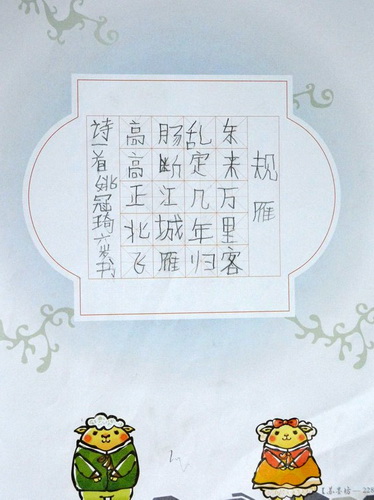 规雁
东来万里客
乱定几年归
肠断江城雁
高高正北飞
诗一首姚冠琦六岁书